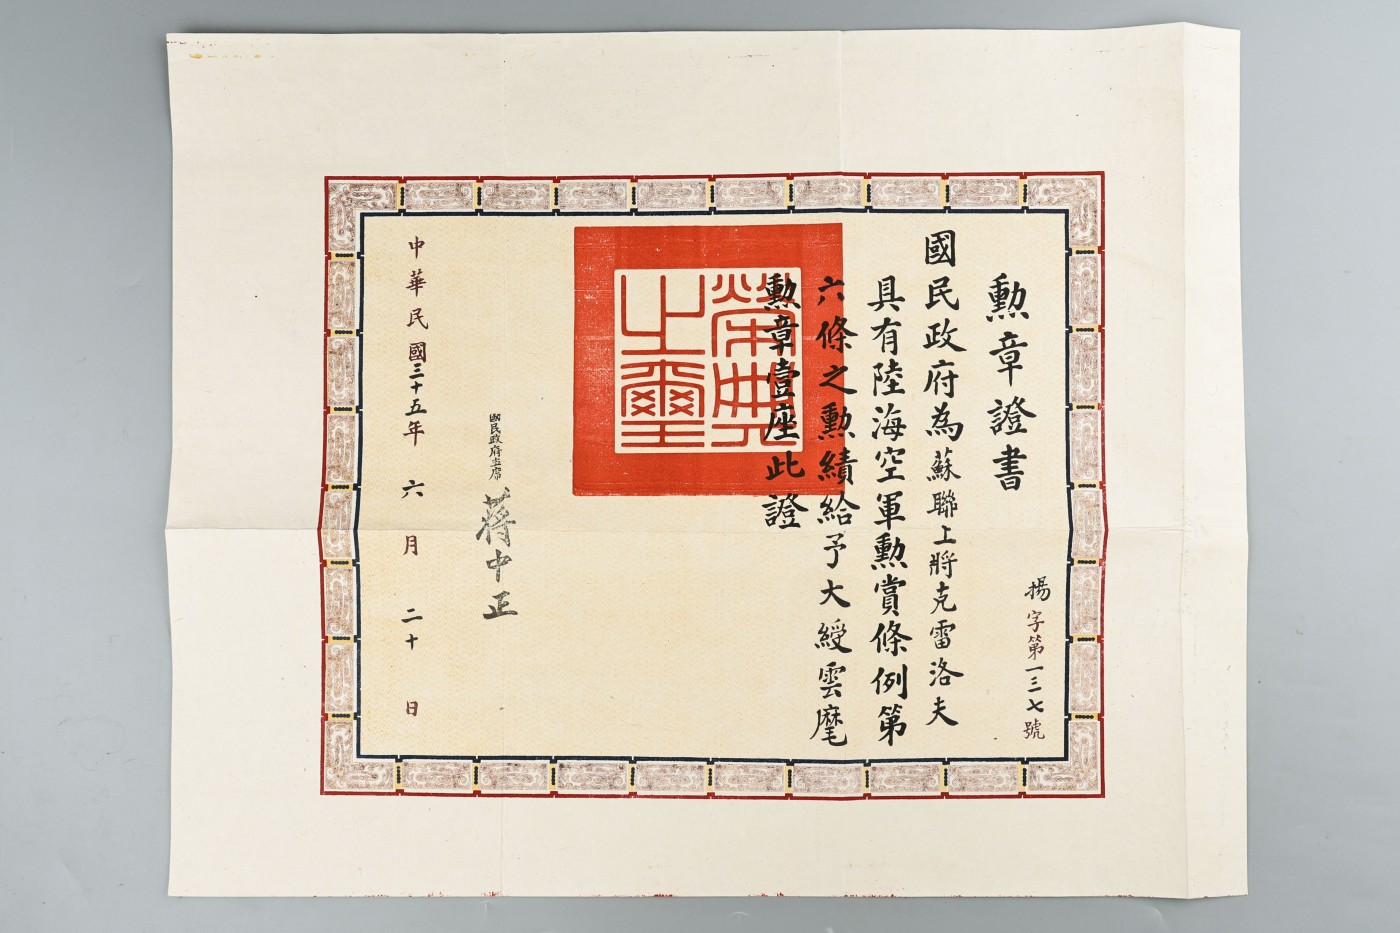 勲章證書
揚字第一三七號
國民政府為蘇聯上將克雷洛夫
具有陸海空軍勲賞條例第
六條之勲績給予大綬雲麾
勲章壹座此證
榮典之璽
國民政府主席
蔣中正
中華民國三十五年六月二十日